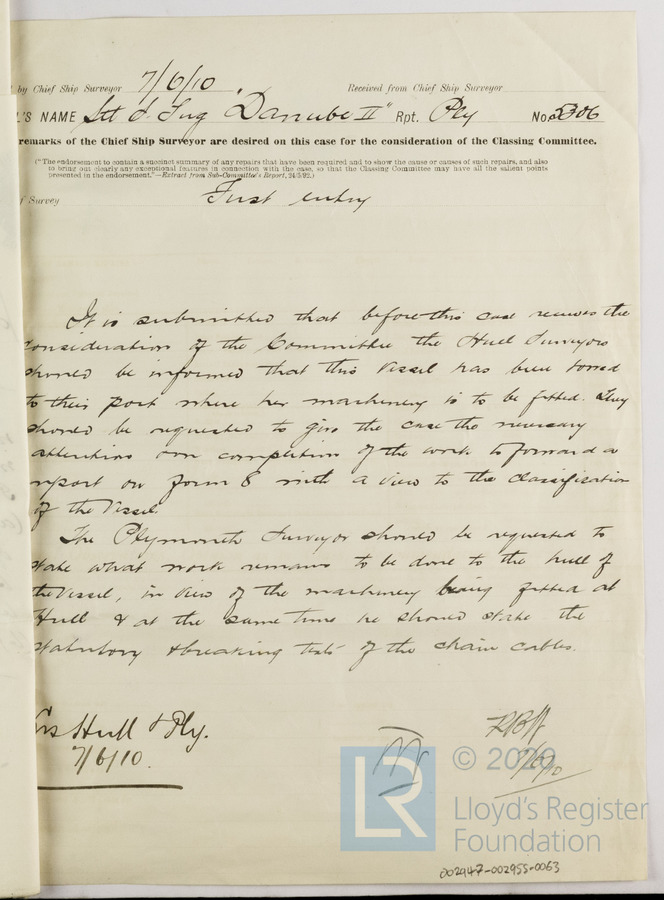 by Chief Ship Surveyor 7/6/10 Received from Chief Ship Surveyor
L'S NAME "Danube II" Rpt. Ply No. 5306
remarks of the Chief Ship Surveyor are desired on this case for the consideration of the Classing Committee.
("The endorsement to contain a succinct summary of any repairs that have been required and to show the cause or causes of such repairs, and also
to bring out clearly any exceptional features in connection with the case, so that the Classing Committee may have all the salient points
presented in the endorsement."—Extract from Sub-Committee's Report, 24/5/92.)
of Survey First entry
It is submitted that before this case receives the
consideration of the Committee the Hull Surveyors
should be informed that this vessel has been towed
to their port where her machinery is to be fitted. They
should be requested to give the case the necessary
attention on completion of the work to forward a
report on form 8 with a view to the classification
of the Vessel.
The Plymouth Surveyor should be requested to
state what work remains to be done to the hull of
the Vessel, in view of the machinery being fitted at
Hull & at the same time he should state the
statutory & breaking tests of the chain cables.
Hull & Ply.
7/6/10.
7/6/10
LR © 2020
Lloyd's Register
Foundation
002947-002955-0063